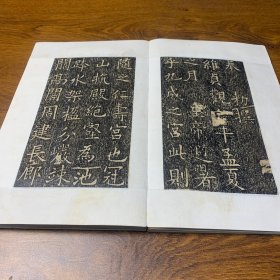 奉勑撰
維貞觀六年孟夏
之月皇帝避暑
乎九成之宮此則
隨之仁壽宮也冠
山抗殿絕壑為池
跨水架楹分巖竦
闕高閣周建長廊